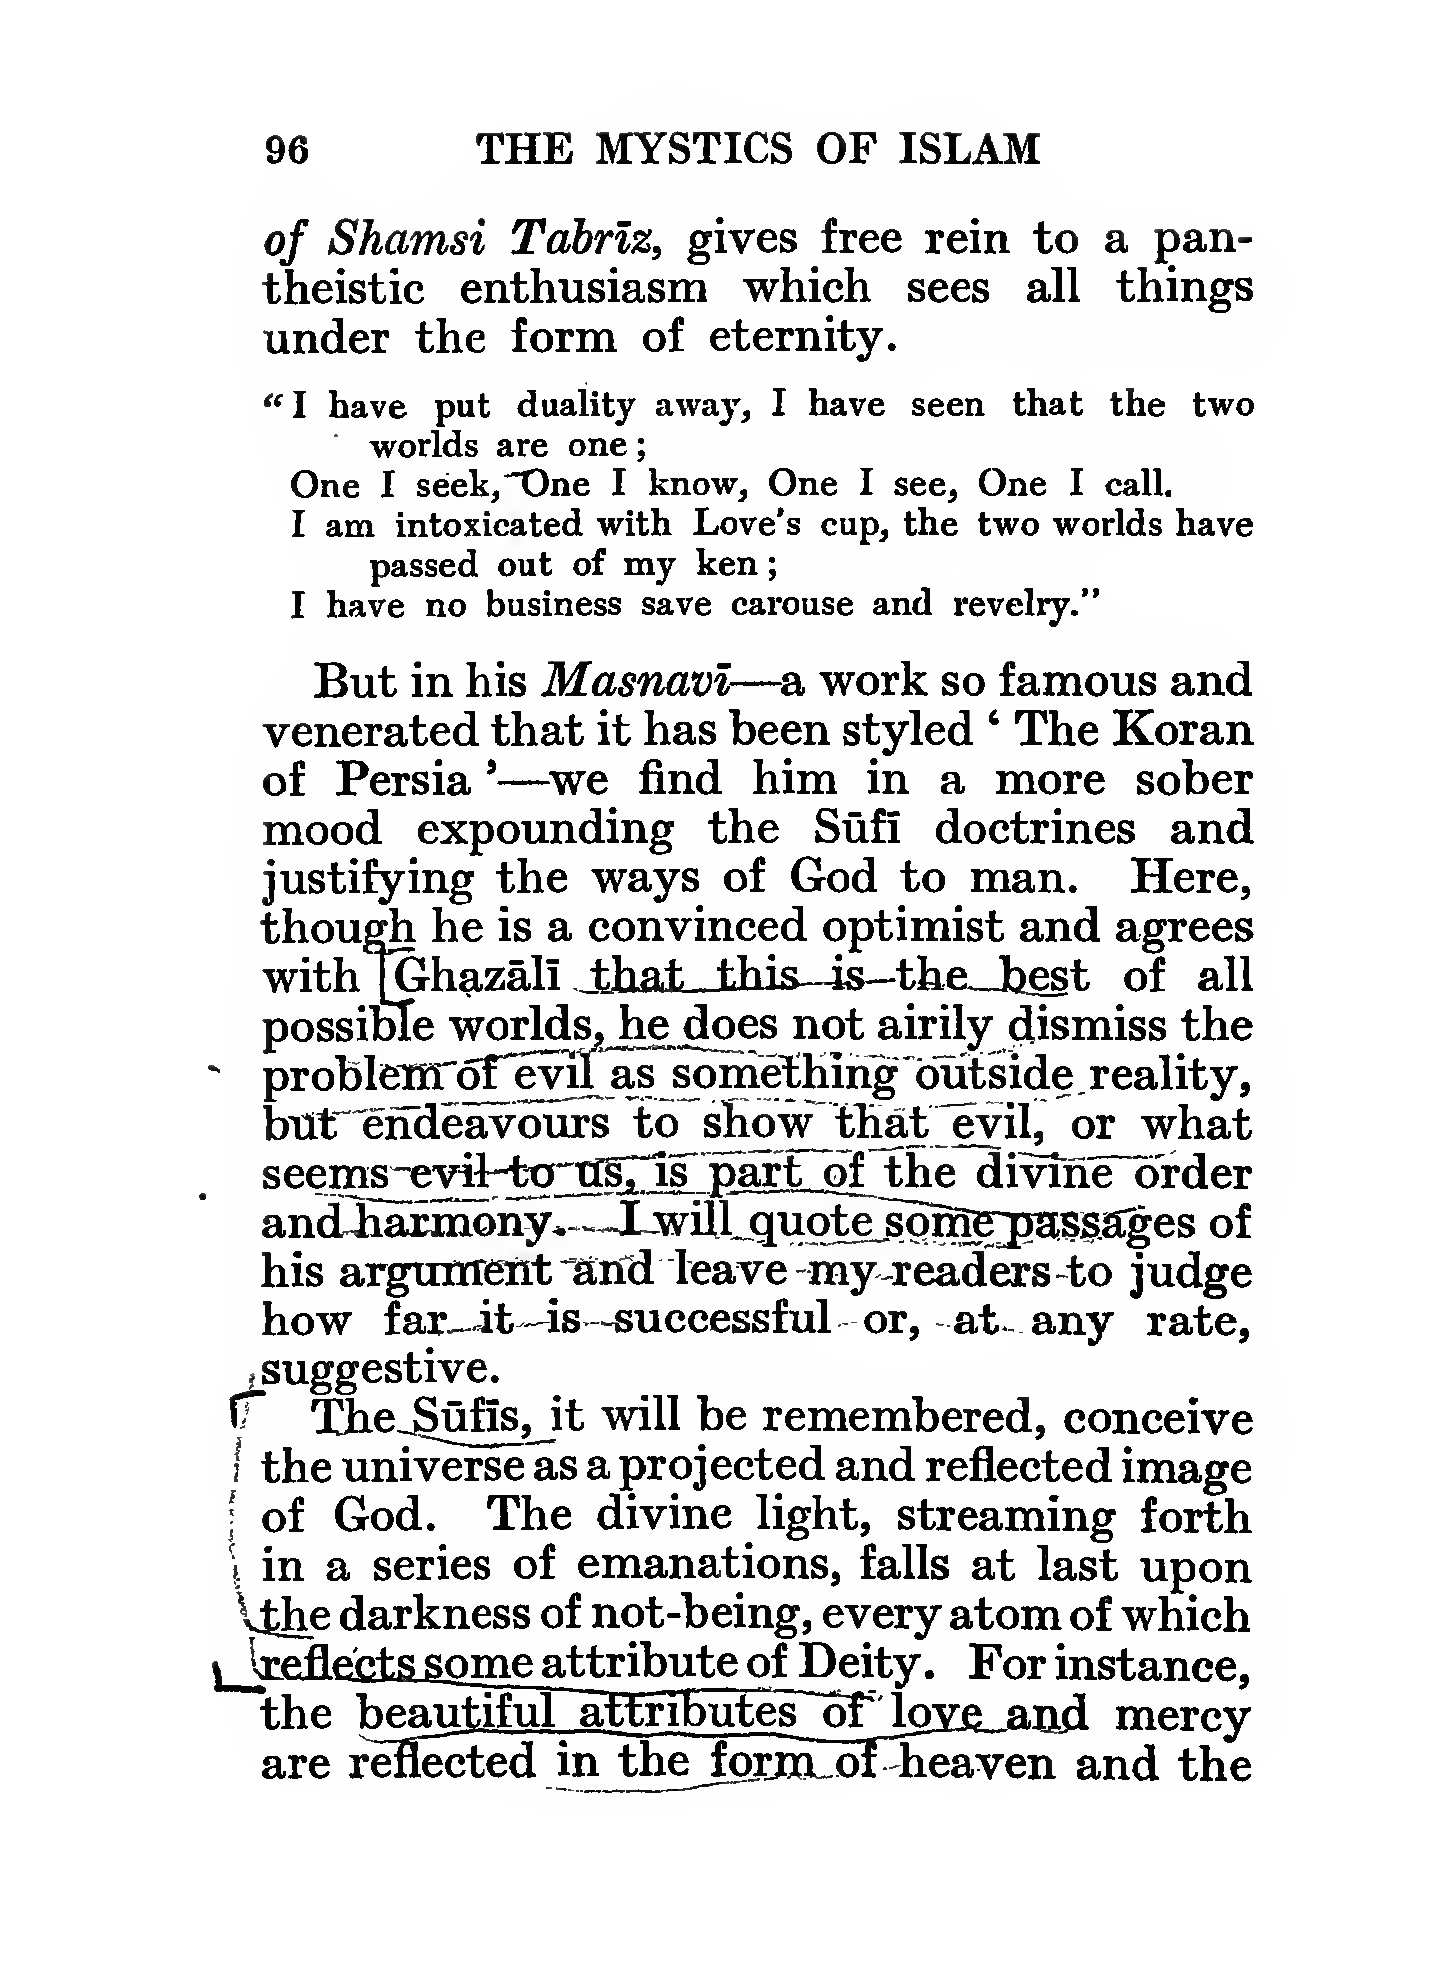 96 THE MYSTICS OF ISLAM
of Shamsi Tabrīz, gives free rein to a pan-
theistic enthusiasm which sees all things
under the form of eternity.
“I have put duality away, I have seen that the two
worlds are one;
One I seek, One I know, One I see, One I call.
I am intoxicated with Love's cup, the two worlds have
passed out of my ken;
I have no business save carouse and revelry.”
But in his Masnavī—a work so famous and
venerated that it has been styled ‘The Koran
of Persia’—we find him in a more sober
mood expounding the Sūfī doctrines and
justifying the ways of God to man. Here,
though he is a convinced optimist and agrees
with Ghazālī that this is the best of all
possible worlds, he does not airily dismiss the
problem of evil as something outside reality,
but endeavours to show that evil, or what
seems evil to us, is part of the divine order
and harmony. I will quote some passages of
his argument and leave my readers to judge
how far it is successful or, at any rate,
suggestive.
The Sūfīs, it will be remembered, conceive
the universe as a projected and reflected image
of God. The divine light, streaming forth
in a series of emanations, falls at last upon
the darkness of not-being, every atom of which
reflects some attribute of Deity. For instance,
the beautiful attributes of love and mercy
are reflected in the form of heaven and the